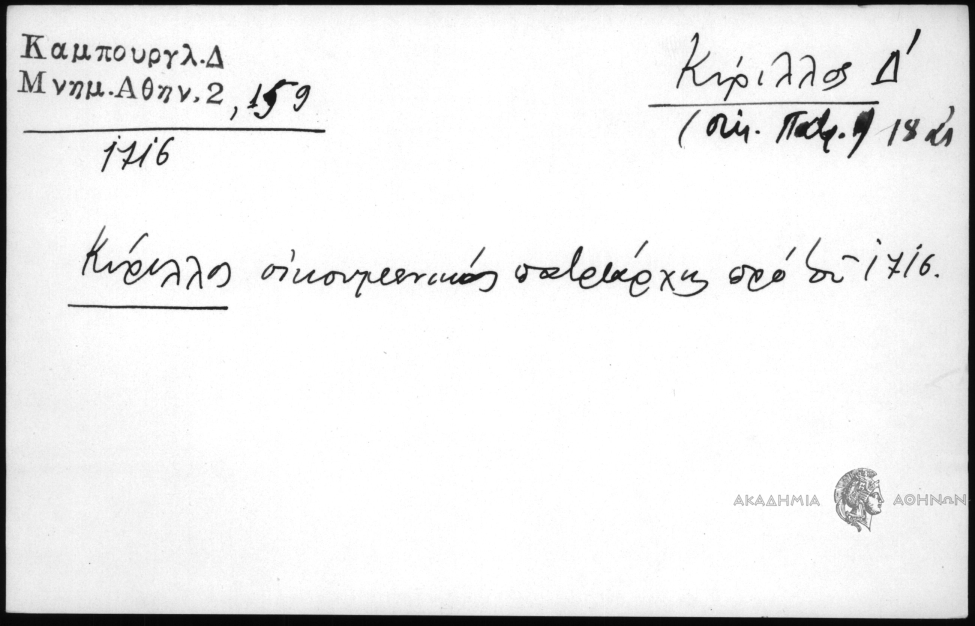 Καμπουργλ.Δ
Μνημ.Αθην.2, 159
1716
Κύριλλος Δ'
(οἰκ. Πατρ.) 18 αι
Κύριλλος οἰκουμενικός πατριάρχης πρό τοῦ 1716.
ΑΚΑΔΗΜΙΑ ΑΘΗΝΩΝ